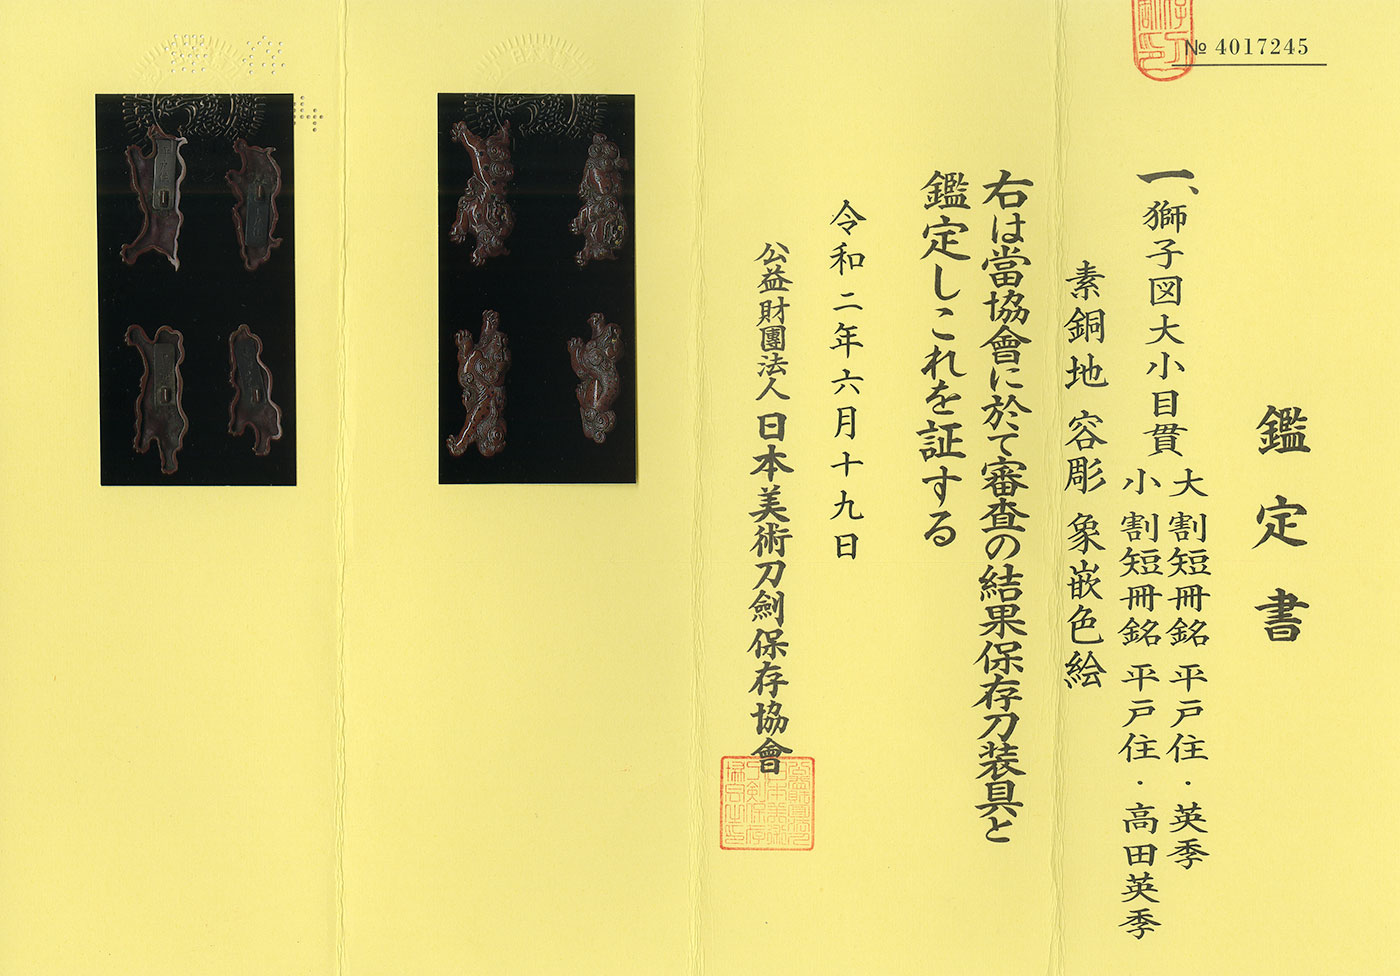 № 4017245
鑑定書
一、獅子図大小目貫
大 割短冊銘 平戸住・英季
小 割短冊銘 平戸住・高田英季
素銅地 容彫 象嵌色絵
右は當協會に於て審査の結果保存刀装具と
鑑定しこれを証する
令和二年六月十九日
公益財團法人 日本美術刀劍保存協會